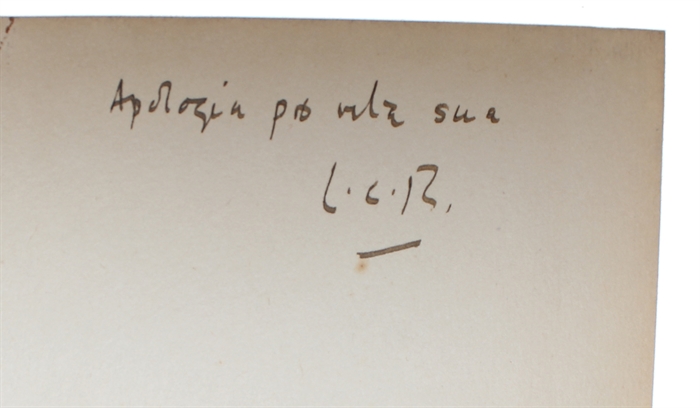 Apologia pro vita sua
L.C.R.